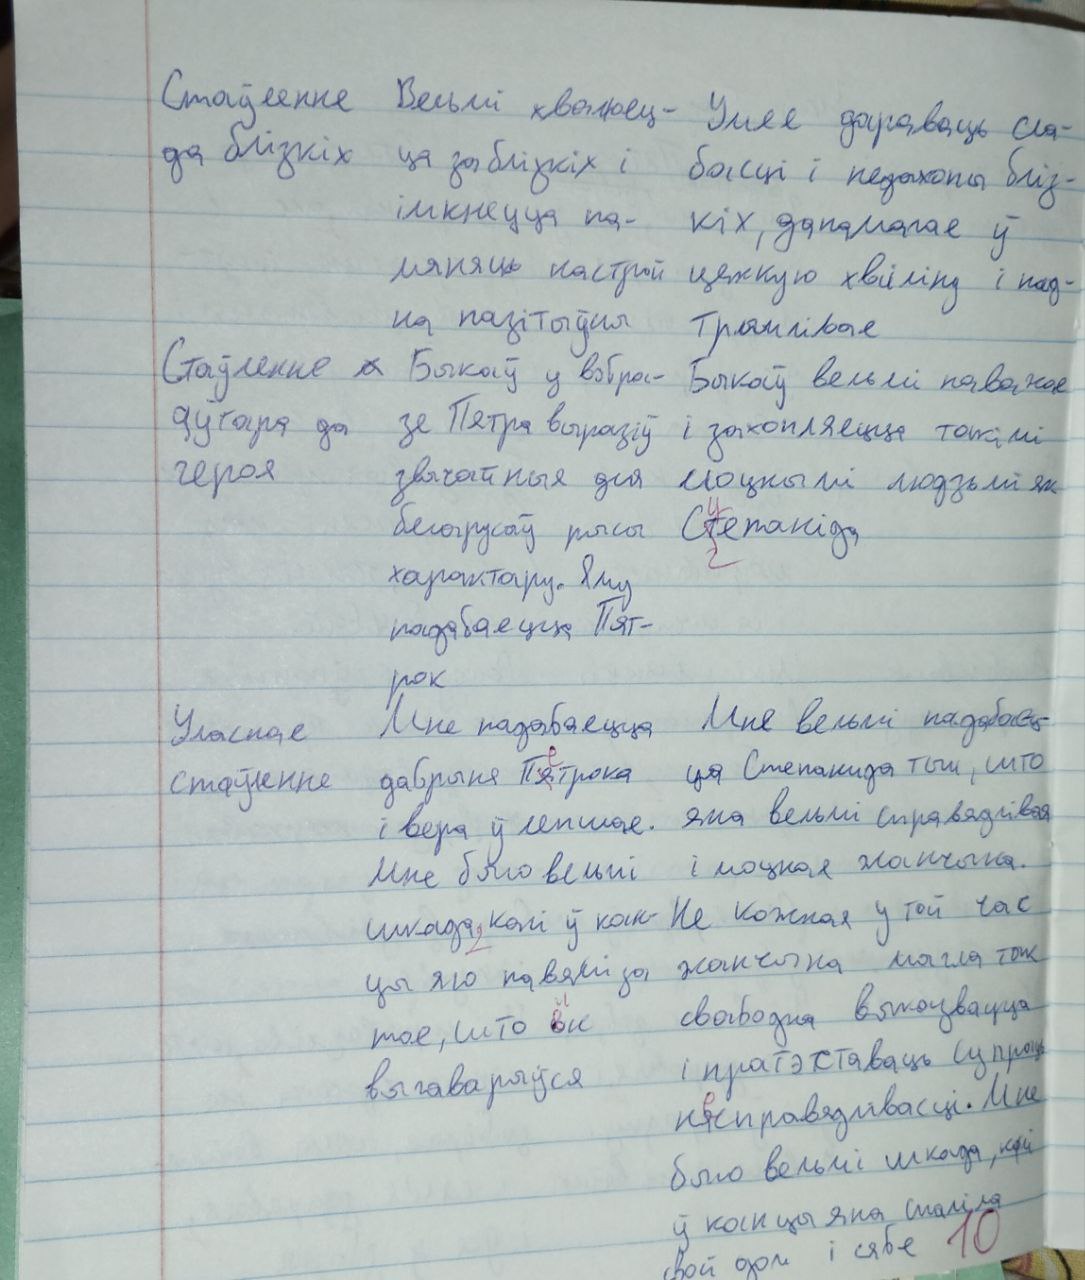 Стаўленне
да блізкіх
Вельмі хвалюец-
ца за блізкіх і
імкнецца па-
мяняць настрой
на пазітыўны
Умее дараваць сла-
басці і недахопы бліз-
кіх, дапамагае ў
цяжкую хвіліну і пад-
трымлівае
Стаўленне
аўтара да
героя
Быкаў у вобра-
зе Пятра выразіў
звычайныя для
беларусаў рысы
характару. Яму
падабаецца Пят-
рок
Быкаў вельмі паважае
і захапляецца такімі
моцнымі людзьмі як
Степаніда
Уласнае
стаўленне
Мне падабаецца
дабрыня Пятрока
і вера ў лепшае.
Мне было вельмі
шкада, калі ў кан-
цы яго павялі за
тое, што ён
выгаварыўся
Мне вельмі падабаец-
ца Степанида тым, што
яна вельмі справядлівая
і моцная жанчына.
Не кожная у той час
жанчына магла так
свабодна выказвацца
і пратэставаць супроць
несправядлівасці. Мне
было вельмі шкада, калі
ў канцы яна спаліла
свой дом і сябе
10